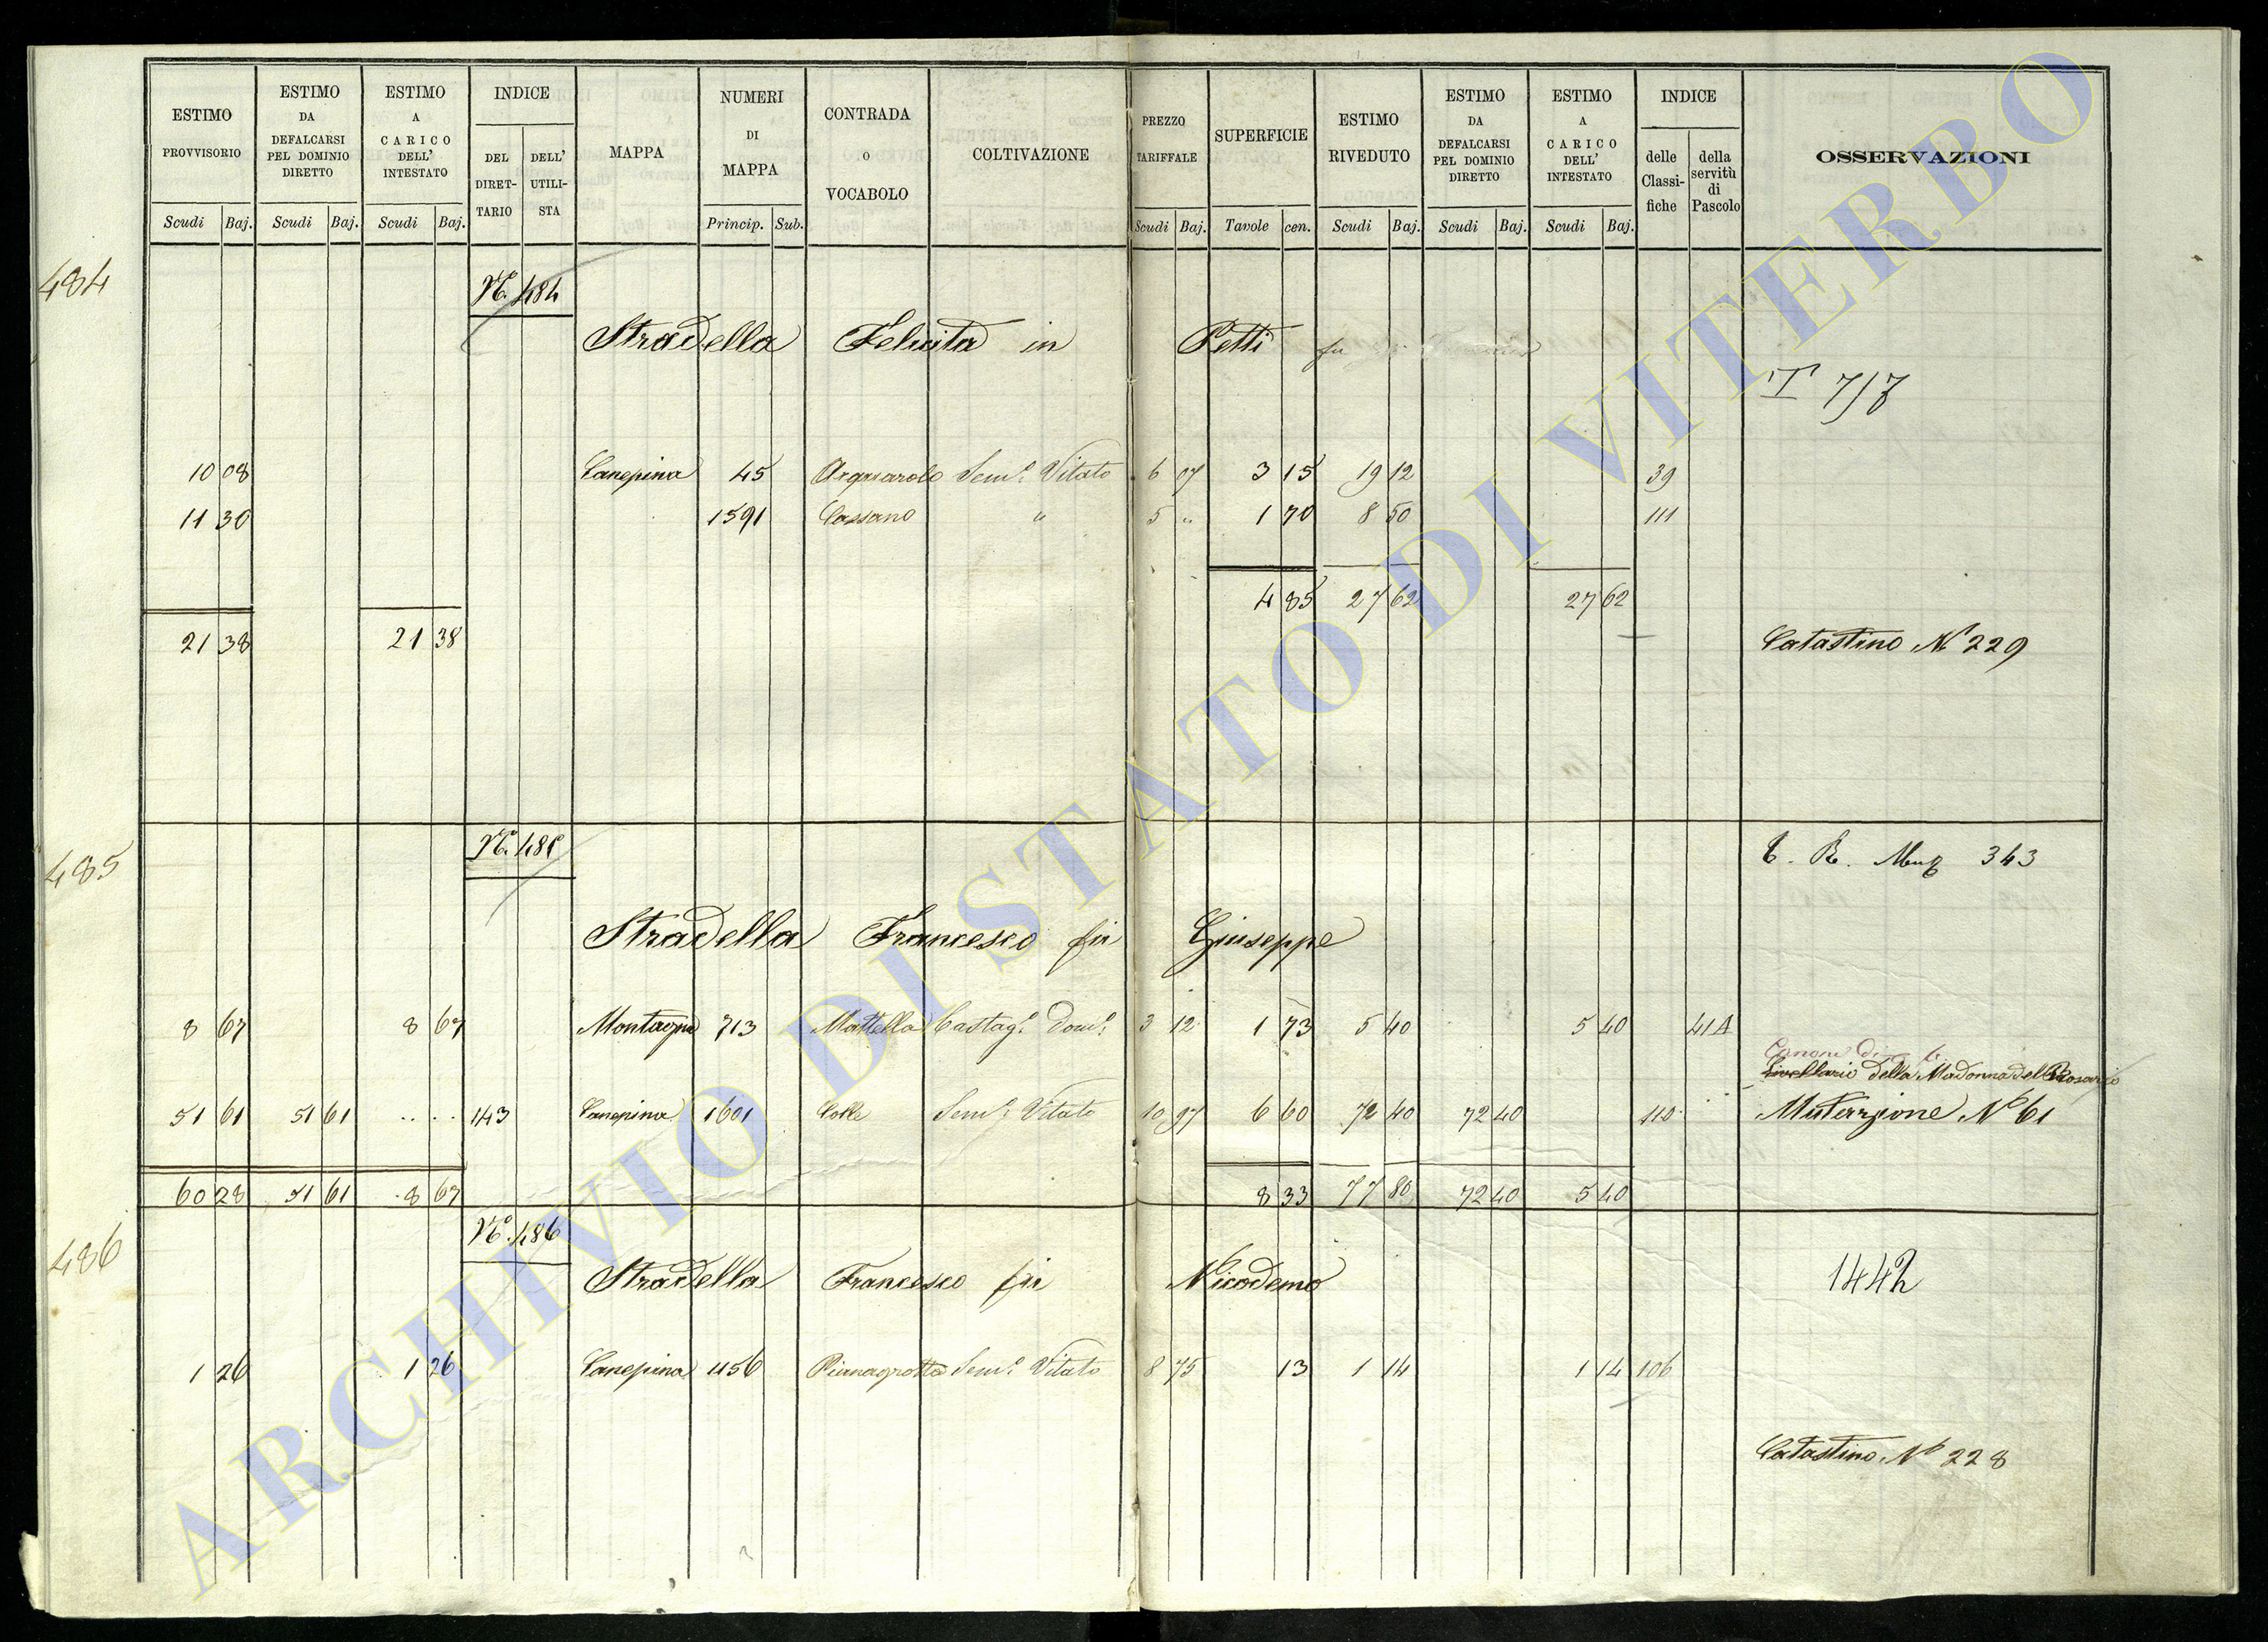 ESTIMO PROVVISORIO
ESTIMO DA DEFALCARSI PEL DOMINIO DIRETTO
ESTIMO A CARICO DELL' INTESTATO
INDICE
DEL DIRET-TARIO
DELL' UTILI-STA
MAPPA
NUMERI DI MAPPA
CONTRADA O VOCABOLO
COLTIVAZIONE
PREZZO TARIFFALE
SUPERFICIE
ESTIMO RIVEDUTO
ESTIMO DA DEFALCARSI PEL DOMINIO DIRETTO
ESTIMO A CARICO DELL' INTESTATO
INDICE
delle Classi-fiche
della servitù di Pascolo
OSSERVAZIONI
Scudi Baj. Scudi Baj. Scudi Baj. Princip. Sub. Scudi Baj. Tavole cen. Scudi Baj. Scudi Baj. Scudi Baj.
484
N.º 484
Stradella Felicita in Petti fu
T 717
10 08 Canepina 45 Sem.º Vitato 6 07 3 15 19 12 39
11 30 1591 Cassano " 5 " 1 70 8 50 111
4 85 27 62 27 62
21 38 21 38
Catastino N 229
485
N.º 485
343
Stradella Francesco fu Giuseppe
8 67 8 67 Montagna 713 Mattella Castag.º Dom.º 3 12 1 73 5 40 5 40 41A
Canone
Livellario della Madonna del Rosario
51 61 51 61 .... 143 Canepina 1601 Colle Sem.º Vitato 10 97 6 60 72 40 72 40 110 Mutazione Nº 61
60 28 51 61 8 67 8 33 77 80 72 40 5 40
486
N.º 486
Stradella Francesco fu Nicodemo
1442
1 26 1 26 Canepina 1156 Pianagrotta Sem.º Vitato 8 75 13 1 14 1 14 106
Catastino Nº 228
ARCHIVIO DI STATO DI VITERBO